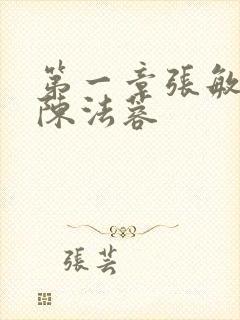 第一章張敏
陳法蓉
張芸